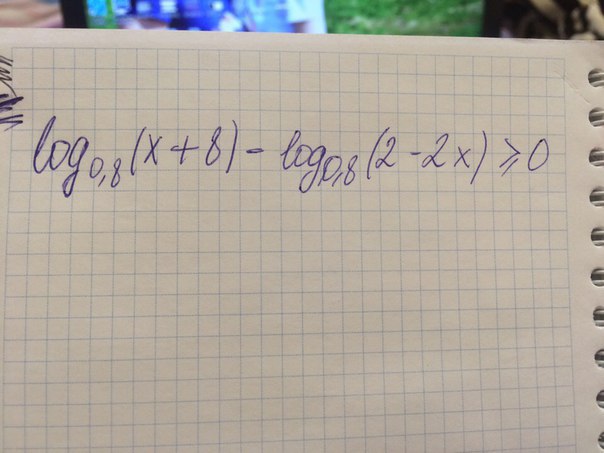 log₀,₈(x+8) - log₀,₈(2-2x) ≥ 0